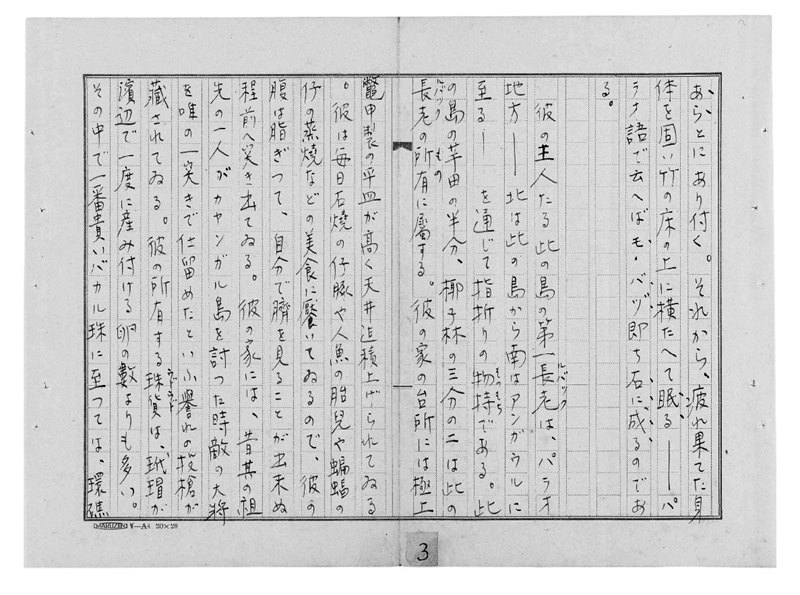 あらとにあり付く。それから、疲れ果てた身
体を固い竹の床の上に横たへて眠る――パ
ラオ語で云へばモ・バヅ即ち石に成るのであ
る。
彼の主人たる此の島の第一長老は、パラオ
ルバック
地方――北は此の島から南はアンガウルに
至る――を通じて指折りの物持である。此
ものもち
の島の芋田の半分、椰子林の三分の二は此の
もの
長老の所有に属する。彼の家の台所には極上
ルバック
鼈甲製の平皿が高く天井迄積上げられてゐる
。彼は毎日石焼の仔豚や人魚の胎児や蝙蝠の
仔の蒸焼などの美食に饜いてゐるので、彼の
腹は脂ぎつて、自分で臍を見ることが出来ぬ
程前へ突き出てゐる。彼の家には、昔其の祖
先の一人がカヤンガル島を討つた時敵の大将
を唯の一突きで仕留めたといふ誉れの投槍が
蔵されてゐる。彼の所有する珠貨は、玳瑁が
ウドウド
濱辺で一度に産み付ける卵の數よりも多い。
その中で一番貴いバカル珠に至つては、環礁
MARUZEN V-A4 20×20
3